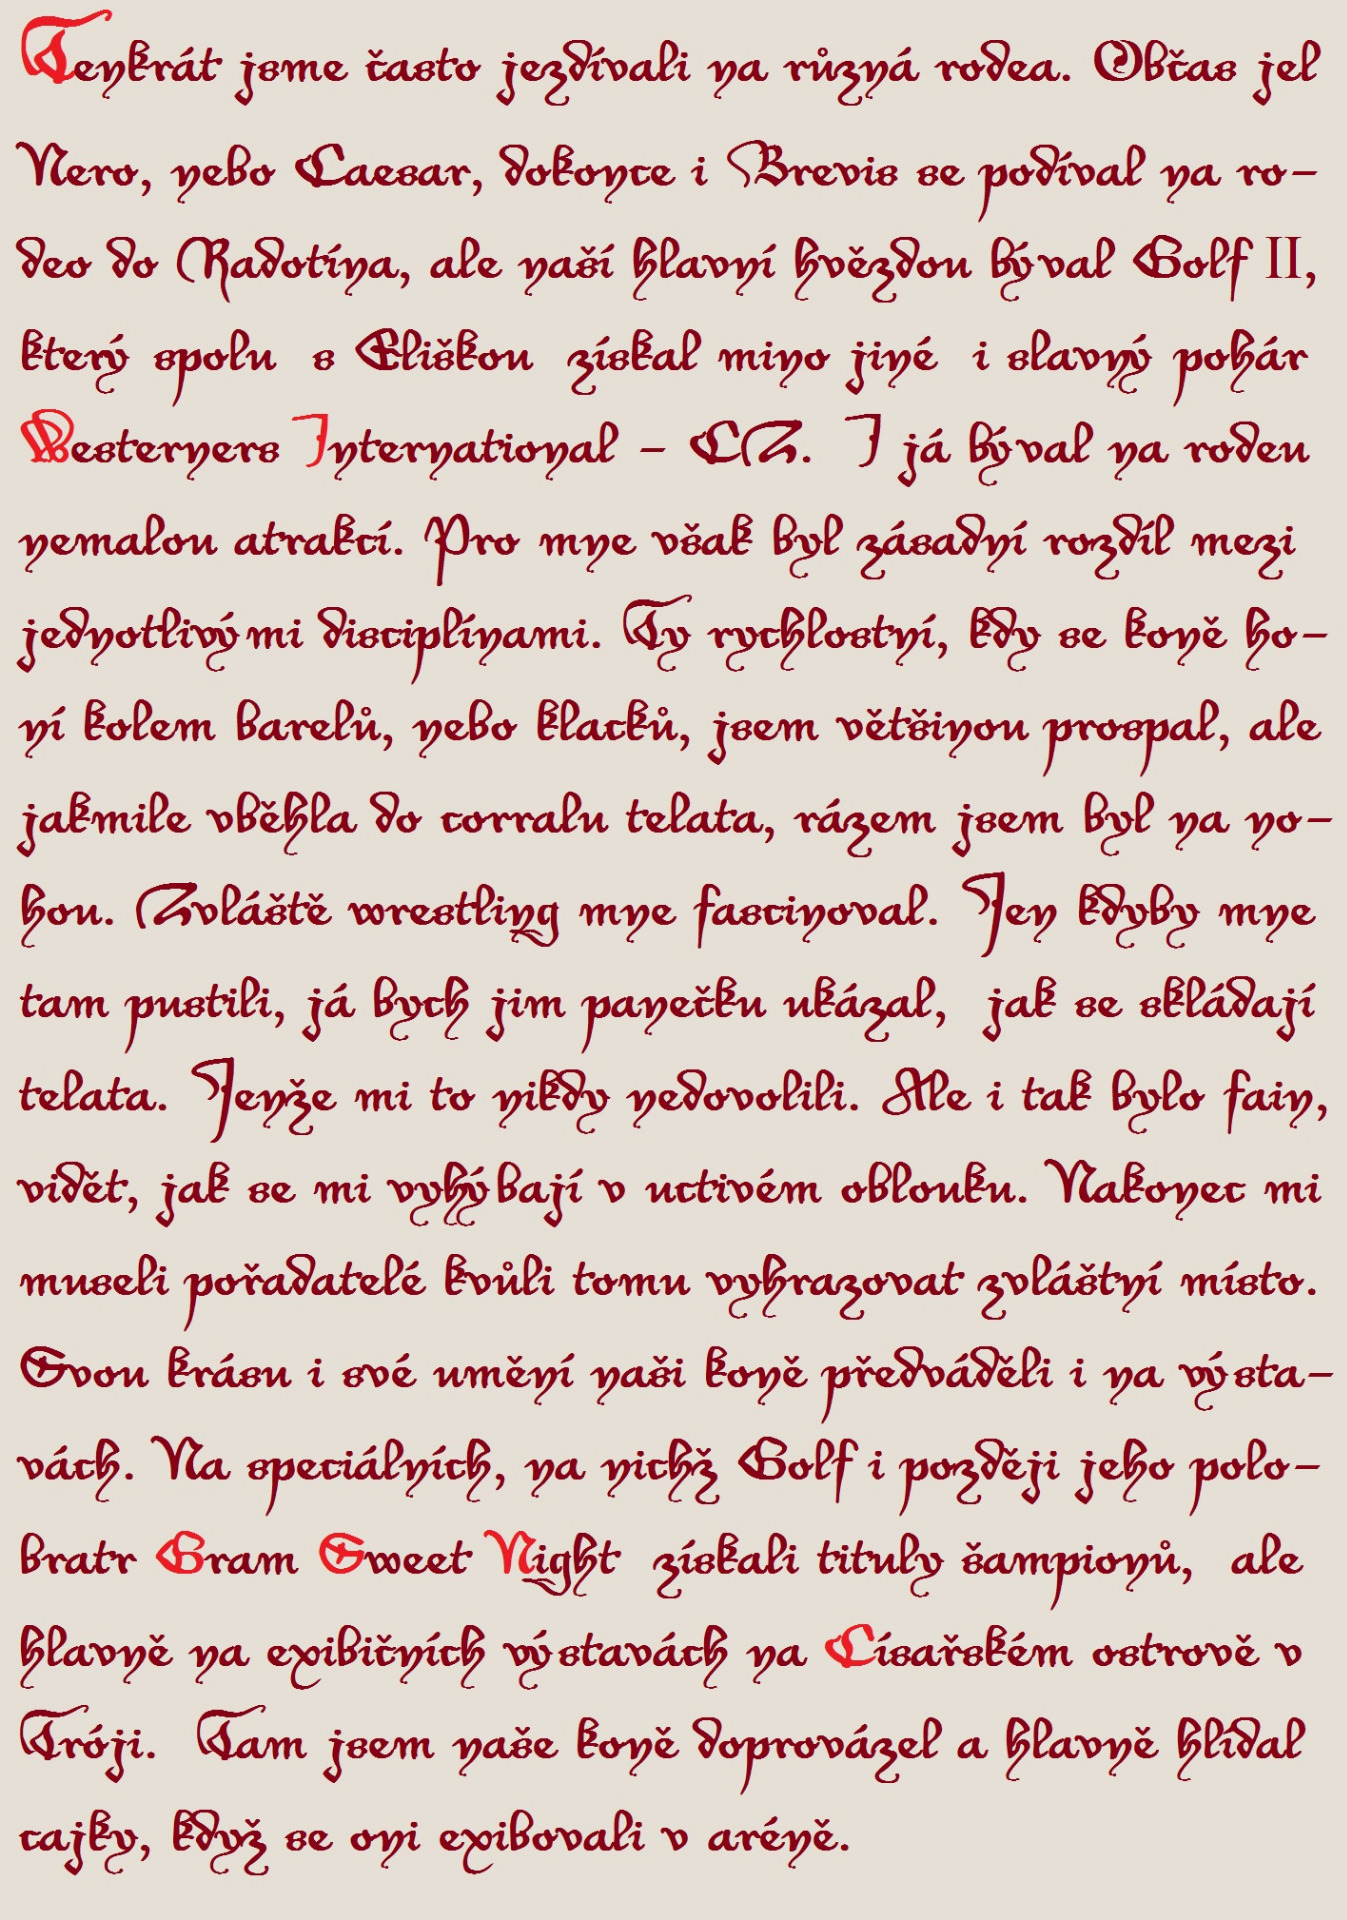 Tenkrát jsme často jezdívali na různá rodea. Občas jel
Nero, nebo Caesar, dokonce i Brevis se podíval na ro-
deo do Radotína, ale naší hlavní hvězdou býval Golf II,
který spolu s Eliškou získal mino jiné i slavný pohár
Westerners International - CZ. I já býval na rodeu
nemalou atrakcí. Pro mne však byl zásadní rozdíl mezi
jednotlivými disciplínami. Ty rychlostní, kdy se koně ho-
ní kolem barelů, nebo klacků, jsem většinou prospal, ale
jakmile vběhla do corralu telata, rázem jsem byl na no-
hou. Zvláště wrestling mne fascinoval. Jen kdyby mne
tam pustili, já bych jim panečku ukázal, jak se skládají
telata. Jenže mi to nikdy nedovolili. Ale i tak bylo fain,
vidět, jak se mi vyhýbají v uctivém oblouku. Nakonec mi
museli pořadatelé kvůli tomu vyhrazovat zvláštní místo.
Svou krásu i své umění naši koně předváděli i na výsta-
vách. Na speciálních, na nichž Golf i později jeho polo-
bratr Gram Sweet Night získali tituly šampionů, ale
hlavně na exibičních výstavách na Císařském ostrově v
Tróji. Tam jsem naše koně doprovázel a hlavně hlídal
cajky, když se oni exibovali v aréně.